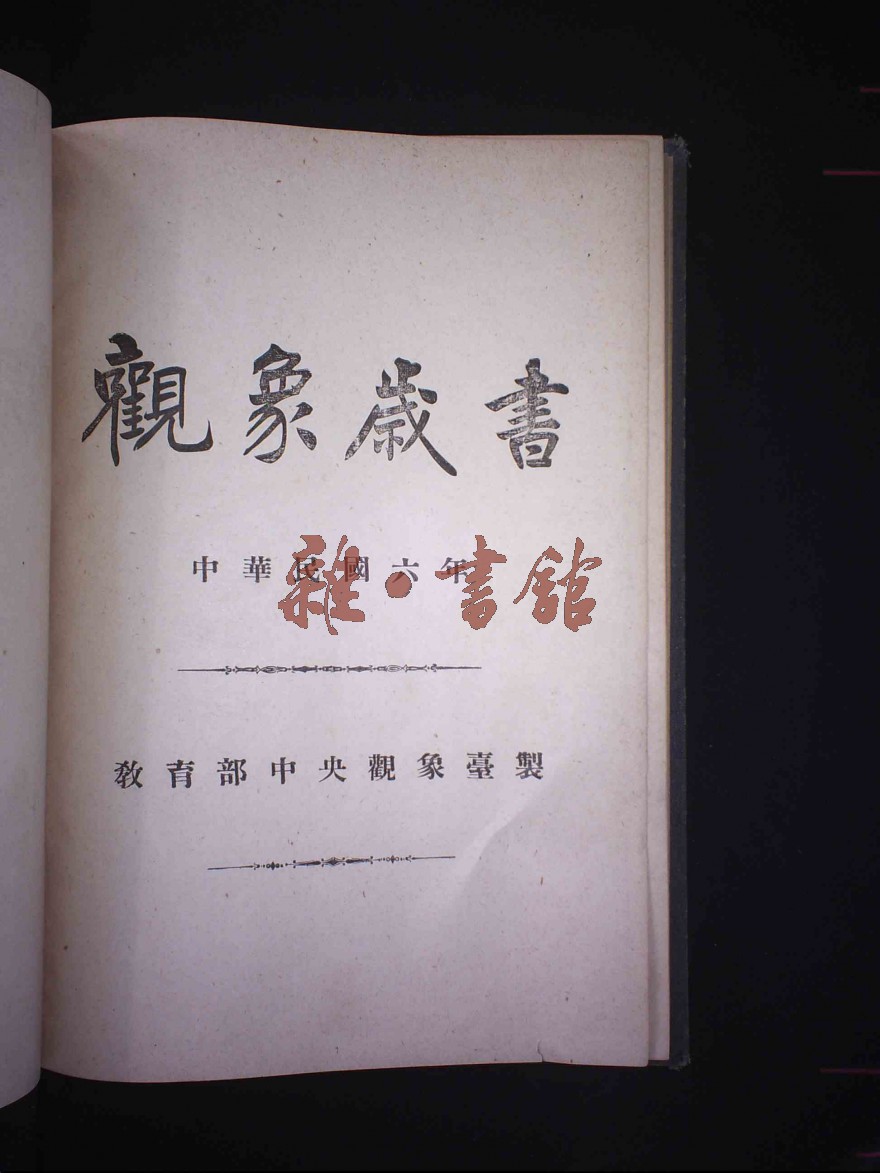 觀象歲書
中華民國六年
雜·書館
教育部中央觀象臺製